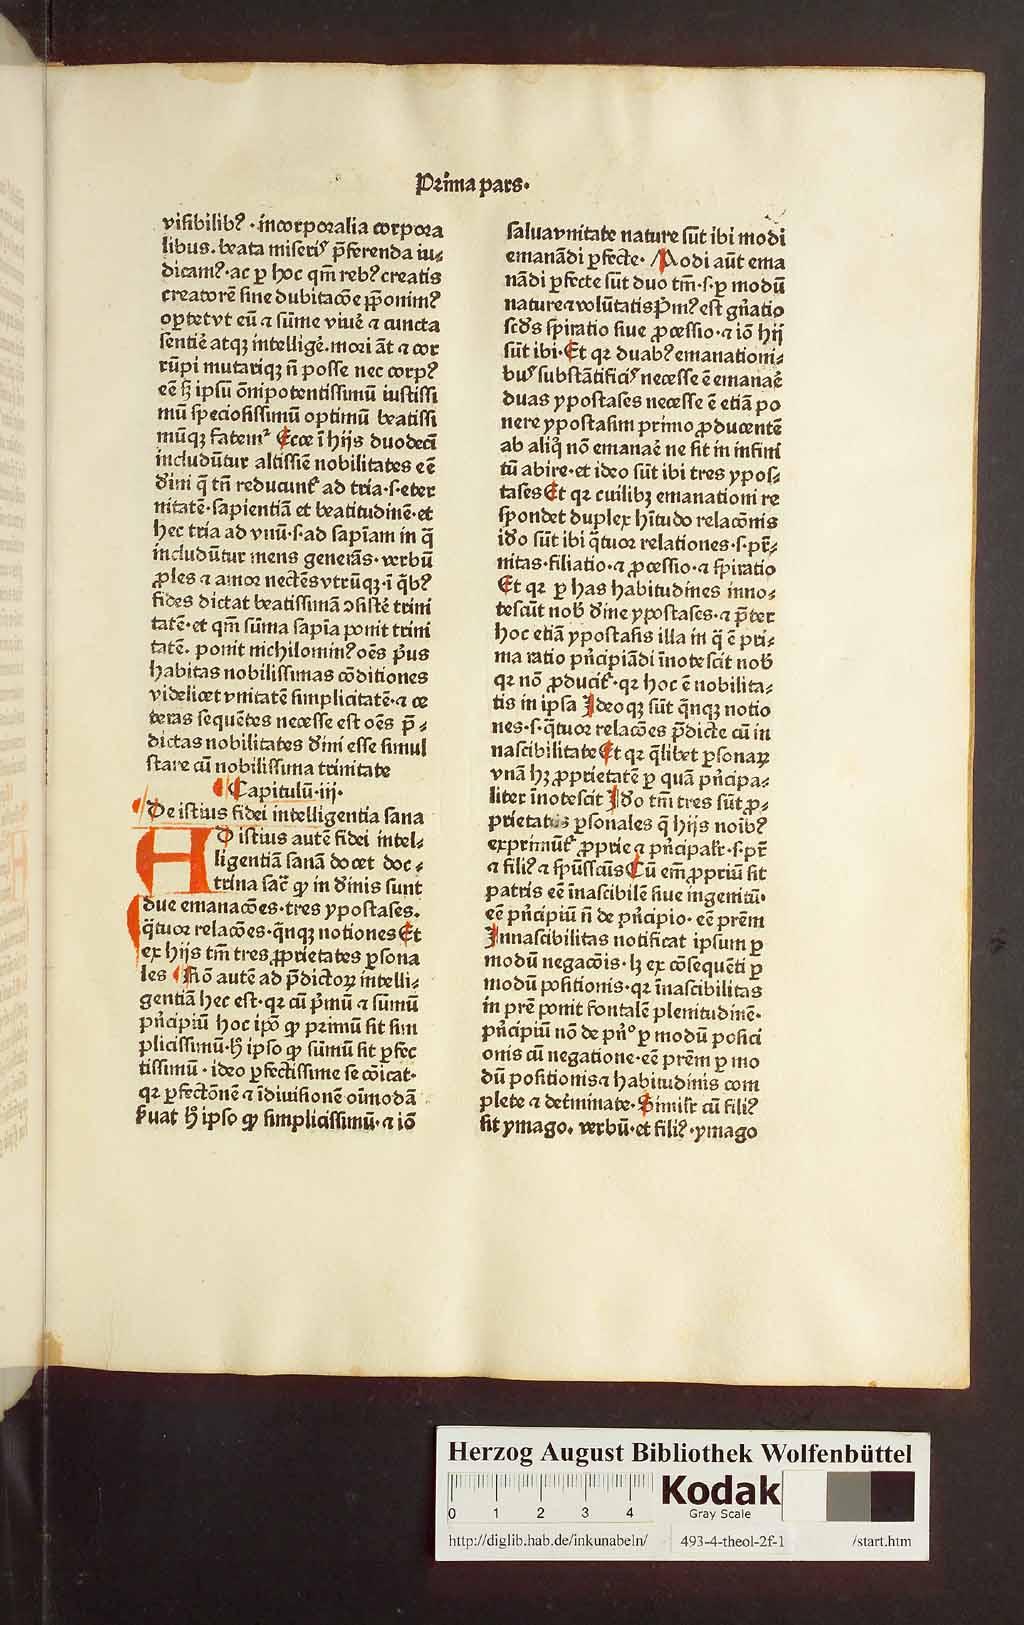 Prima pars.
visibilibꝰ · incorporalia corpora
libus. beata miserꝭ p̄ferenda iu⸗
dicamꝰ · ac ꝑ hoc qm̄ rebꝰ creatis
creatorē sine dubitacōe p̄ponimꝰ
oportet vt eū ⁊ sūme viuē ⁊ cuncta
sentiē atqꝫ intelligē. mori āt ⁊ cor
rūpi mutariqꝫ n̄ posse nec corpꝰ
eē sꝫ ipsū om̄ipotentissimū iustissi
mū speciosissimū optimū beatissi
mūqꝫ fatemᷣ Ecce ī hijs duodecī
includūtur altissīe nobilitates eē
dīni q̄ tn̄ reducunt᷑ ad tria · s · eter
nitatē · sapientiā et beatitudinē · et
hec tria ad vnū · s · ad sapīam in q̄
includūtur mens generās · verbū
ꝓles ⁊ amor nectēs vtrūqꝫ · ī q̄bꝰ
fides dictat beatissimā ꝯsistē trini
tatē · et qm̄ sūma sapīa ponit trini
tatē. ponit nichilominꝰ oēs p̄us
habitas nobilissimas cōditiones
videlicet vnitatē simplicitatē · ⁊ ce
teras sequētes necesse est oēs p̄⸗
dictas nobilitates dīni esse simul
stare cū nobilissima trinitate
Capitulū · iij ·
De istius fidei intelligentia sana
AD istius autē fidei intel⸗
ligentiā sanā docet doc⸗
trina sac̄ ꝙ in dīnis sunt
due emanacōes · tres ypostases.
q̄tuor relacōes · q̄nqꝫ notiones Et
ex hijs tm̄ tres ꝓprietates ꝑsona
les Rō autē ad p̄dictoꝝ intelli⸗
gentiā hec est · qꝛ cū p̄mū ⁊ sūmū
pn̄cipiū hoc ipō ꝙ primū sit sim
plicissimū · h̄ ipso ꝙ sūmū sit ꝑfec
tissimū · ideo ꝑfectissime se cōicat ·
qꝛ ꝑfectōnē ⁊ īdiuisionē oīmodā
s̄uat h̄ ipso ꝙ simplicissimū · ⁊ iō
salua vnitate nature sūt ibi modi
emanādi ꝑfecte · Modi aūt ema
nādi ꝑfecte sūt duo tm̄ · s · ꝑ modū
nature ⁊ volūtatis P̄mꝰ est gn̄atio
scd̄s spiratio siue ꝓcessio · ⁊ iō hij
sūt ibi · Et qꝛ duabꝰ emanationi⸗
bꝰ substātificꝭ necesse ē emanaē
duas ypostases necesse ē etiā po
nere ypostasim primo ꝓducentē
ab aliq̊ nō emanaē ne sit in infini
tū abire · et ideo sūt ibi tres ypos⸗
tases Et qꝛ cuilibꝫ emanationi re
spondet duplex hītudo relacōnis
iđo sūt ibi q̄tuor relationes · s · pr̄⸗
nitas · filiatio · ⁊ ꝓcessio · ⁊ spiratio
Et qꝛ ꝑ has habitudines inno⸗
tescūt nob̄ dīne ypostases · ⁊ p̄ter
hoc etiā ypostasis illa in q̄ ē pri⸗
ma ratio pn̄cipiādi īnotescit nob̄
qꝛ nō ꝓducit᷑ · qꝛ hoc ē nobilita⸗
tis in ipsa Ideoqꝫ sūt q̄nqꝫ notio
nes · s · q̄tuor relacōes p̄dicte cū in
nascibilitate Et qꝛ q̄libet ꝑsonaꝝ
vnā hꝫ ꝓprietatē ꝑ quā pn̄cipa⸗
liter īnotescit Iđo tm̄ tres sūt ꝓ⸗
prietates ꝑsonales q̄ hijs noībꝰ
exprimūt᷑ ꝓprie ⁊ pn̄cipalr̄ · s · pr̄
⁊ filiꝰ ⁊ spūssc̄us Cū em̄ ꝓpriū sit
patris eē īnascibilē siue ingenitū ·
eē pn̄cipiū n̄ de pn̄cipio · eē prēm
Innascibilitas notificat ipsum ꝑ
modū negacōis · lꝫ ex cōsequēti ꝑ
modū positionis · qꝛ īnascibilitas
in prē ponit fontalē plenitudinē ·
pn̄cipiū nō de pn̄º ꝑ modū posici
onis cū negatione · eē prēm ꝑ mo
dū positionis ⁊ habitudinis com
plete ⁊ detīminate · Similr̄ cū filiꝰ
sit ymago. verbū · et filiꝰ · ymago
Herzog August Bibliothek Wolfenbüttel
0 1 2 3 4
Kodak
Gray Scale
http://diglib.hab.de/inkunabeln/ 493-4-theol-2f-1 /start.htm